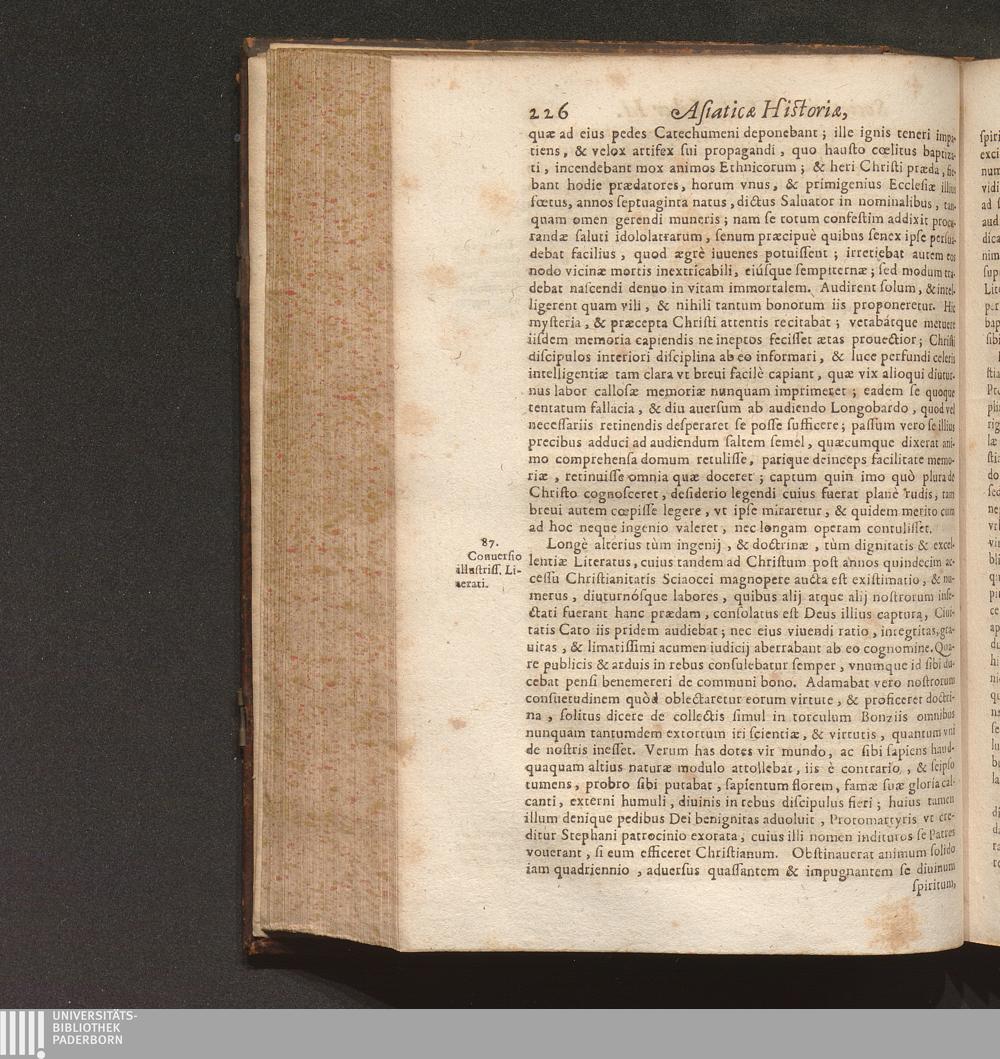 226 Asiaticæ Historiæ,
quæ ad eius pedes Catechumeni deponebant; ille ignis teneri impa-
tiens, & velox artifex sui propagandi, quo hausto cœlitus baptiza-
ti, incendebant mox animos Ethnicorum; & heri Christi præda, fie-
bant hodie prædatores, horum vnus, & primigenius Ecclesiæ illius
fœtus, annos septuaginta natus, dictus Saluator in nominalibus, tan-
quam omen gerendi muneris; nam se totum confestim addixit procu-
randæ saluti idololatrarum, senum præcipuè quibus senex ipse persua-
debat facilius, quod ægrè iuuenes potuissent; irretiebat autem eos
nodo vicinæ mortis inextricabili, eiúsque sempiternæ; sed modum tra-
debat nascendi denuo in vitam immortalem. Audirent solum, & intel-
ligerent quam vili, & nihili tantum bonorum iis proponeretur. Hic
mysteria, & præcepta Christi attentis recitabat; vetabátque metuere
iisdem memoria capiendis ne ineptos fecisset ætas prouectior; Christi
discipulos interiori disciplina ab eo informari, & luce perfundi celeris
intelligentiæ tam clara vt breui facilè capiant, quæ vix alioqui diutur-
nus labor callosæ memoriæ nunquam imprimeret; eadem se quoque
tentatum fallacia, & diu auersum ab audiendo Longobardo, quod vel
necessariis retinendis desperaret se posse sufficere; passum vero se illius
precibus adduci ad audiendum saltem semel, quæcumque dixerat ani-
mo comprehensa domum retulisse, parique deinceps facilitate memo-
riæ, retinuisse omnia quæ doceret; captum quin imo quò plura de
Christo cognosceret, desiderio legendi cuius fuerat planè rudis, tam
breui autem cœpisse legere, vt ipse miraretur, & quidem merito cum
ad hoc neque ingenio valeret, nec longam operam contulisset.
87.
Conuersio
illustriss. Li-
terati.
Longè alterius tùm ingenij, & doctrinæ, tùm dignitatis & excel-
lentiæ Literatus, cuius tandem ad Christum post annos quindecim ac-
cessu Christianitatis Sciaocei magnopere aucta est existimatio, & nu-
merus, diuturnósque labores, quibus alij atque alij nostrorum inse-
ctati fuerant hanc prædam, consolatus est Deus illius captura, Ciui-
tatis Cato iis pridem audiebat; nec eius viuendi ratio, integritas, gra-
uitas, & limatissimi acumen iudicij aberrabant ab eo cognomine. Qua-
re publicis & arduis in rebus consulebatur semper, vnumque id sibi du-
cebat pensi benemereri de communi bono. Adamabat vero nostrorum
consuetudinem quòd oblectaretur eorum virtute, & proficeret doctri-
na, solitus dicere de collectis simul in torculum Bonziis omnibus
nunquam tantumdem extortum iri scientiæ, & virtutis, quantum vni
de nostris inesset. Verum has dotes vir mundo, ac sibi sapiens haud-
quaquam altius naturæ modulo attollebat, iis è contrario, & seipso
tumens, probro sibi putabat, sapientum florem, famæ suæ gloria cal-
canti, externi humuli, diuinis in rebus discipulus fieri; huius tamen
illum denique pedibus Dei benignitas aduoluit, Protomartyris vt cre-
ditur Stephani patrocinio exorata, cuius illi nomen indituros se Patres
vouerant, si eum efficeret Christianum. Obstinauerat animum solido
iam quadriennio, aduersus quassantem & impugnantem se diuinum
spiritum,
UNIVERSITÄTS-
BIBLIOTHEK
PADERBORN